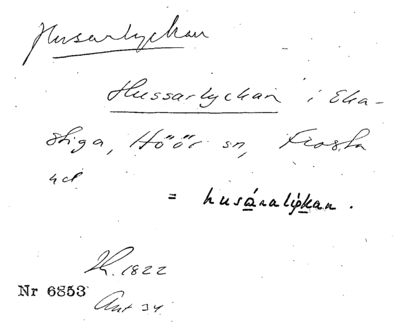 Husarlyckan
Hussarlyckan i Eka-
stiga, Höör sn, Frosta
hd
= husáralýkan.
Lh. 1822
Nr 6853
Ant 34